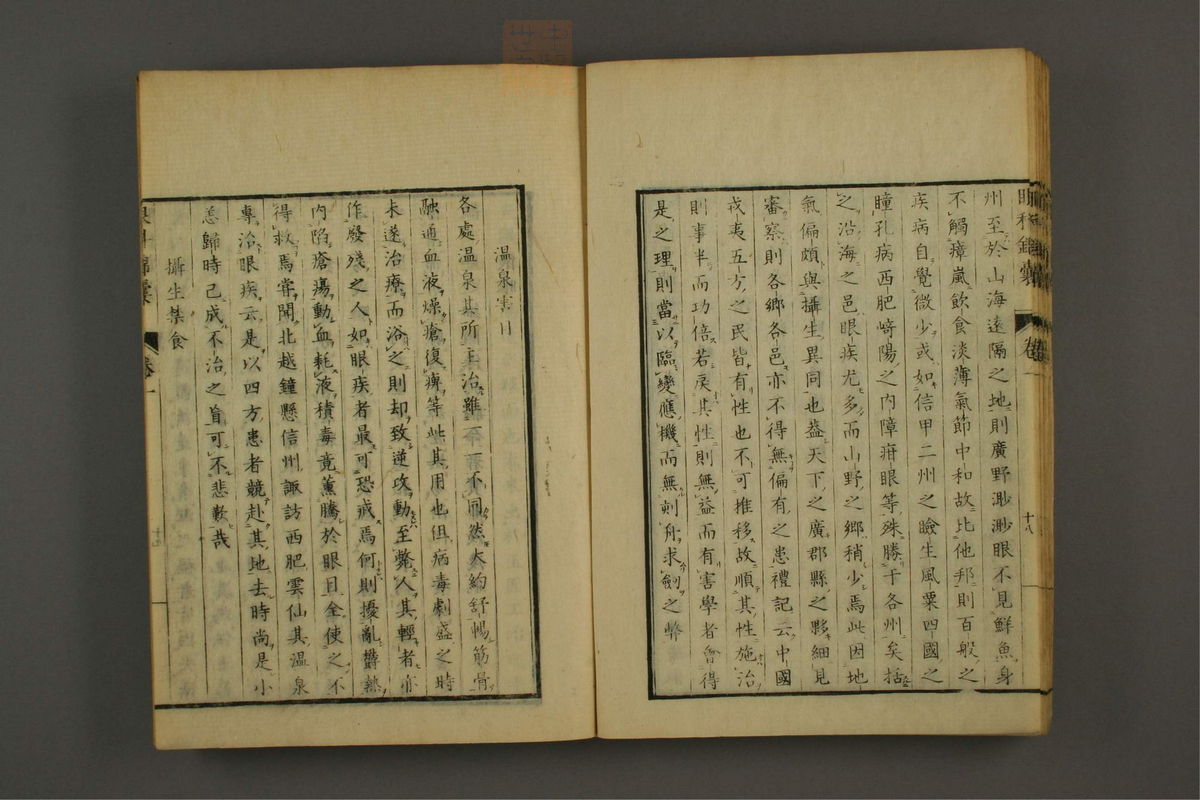 眼科錦囊 卷一 十八
州至於山海遠隔之地則廣野渺渺眼不見鮮魚身
不觸瘴嵐飲食淡薄氣節中和故比他邦則百般之
疾病自覺微少或如信甲二州之瞼生風粟四國之
瞳孔病西肥﨑陽之内障疳眼等殊勝于各州矣括
之沿海之邑眼疾尤多而山野之鄉稍少焉此因地
氣偏頗與攝生異同也蓋天下之廣郡縣之夥細見
審察則各鄉各邑亦不得無偏有之患禮記云中國
戎夷五方之民皆有性也不可推移故順其性施治
則事半而功倍若戾其性則無益而有害學者會得
是之理則當以臨變應機而無刻舟求劔之弊
溫泉害目
各處溫泉其所主治雖不同然大約舒暢筋骨
融通血液燥瘡復痺等此其用也但病毒劇盛之時
未遂治療而浴之則却致逆攻動至斃人其輕者亦
作發殘之人如眼疾者最可恐戒焉何則擾亂欝熱
内陷瘡瘍動血耗液積毒竟薰騰於眼目全使之不
得救焉甞聞北越鐘懸信州諏訪西肥雲仙其溫泉
專治眼疾云是以四方患者競赴其地去時尚是小
恙歸時已成不治之盲可不悲歎哉
攝生禁食
眼科錦囊 卷一